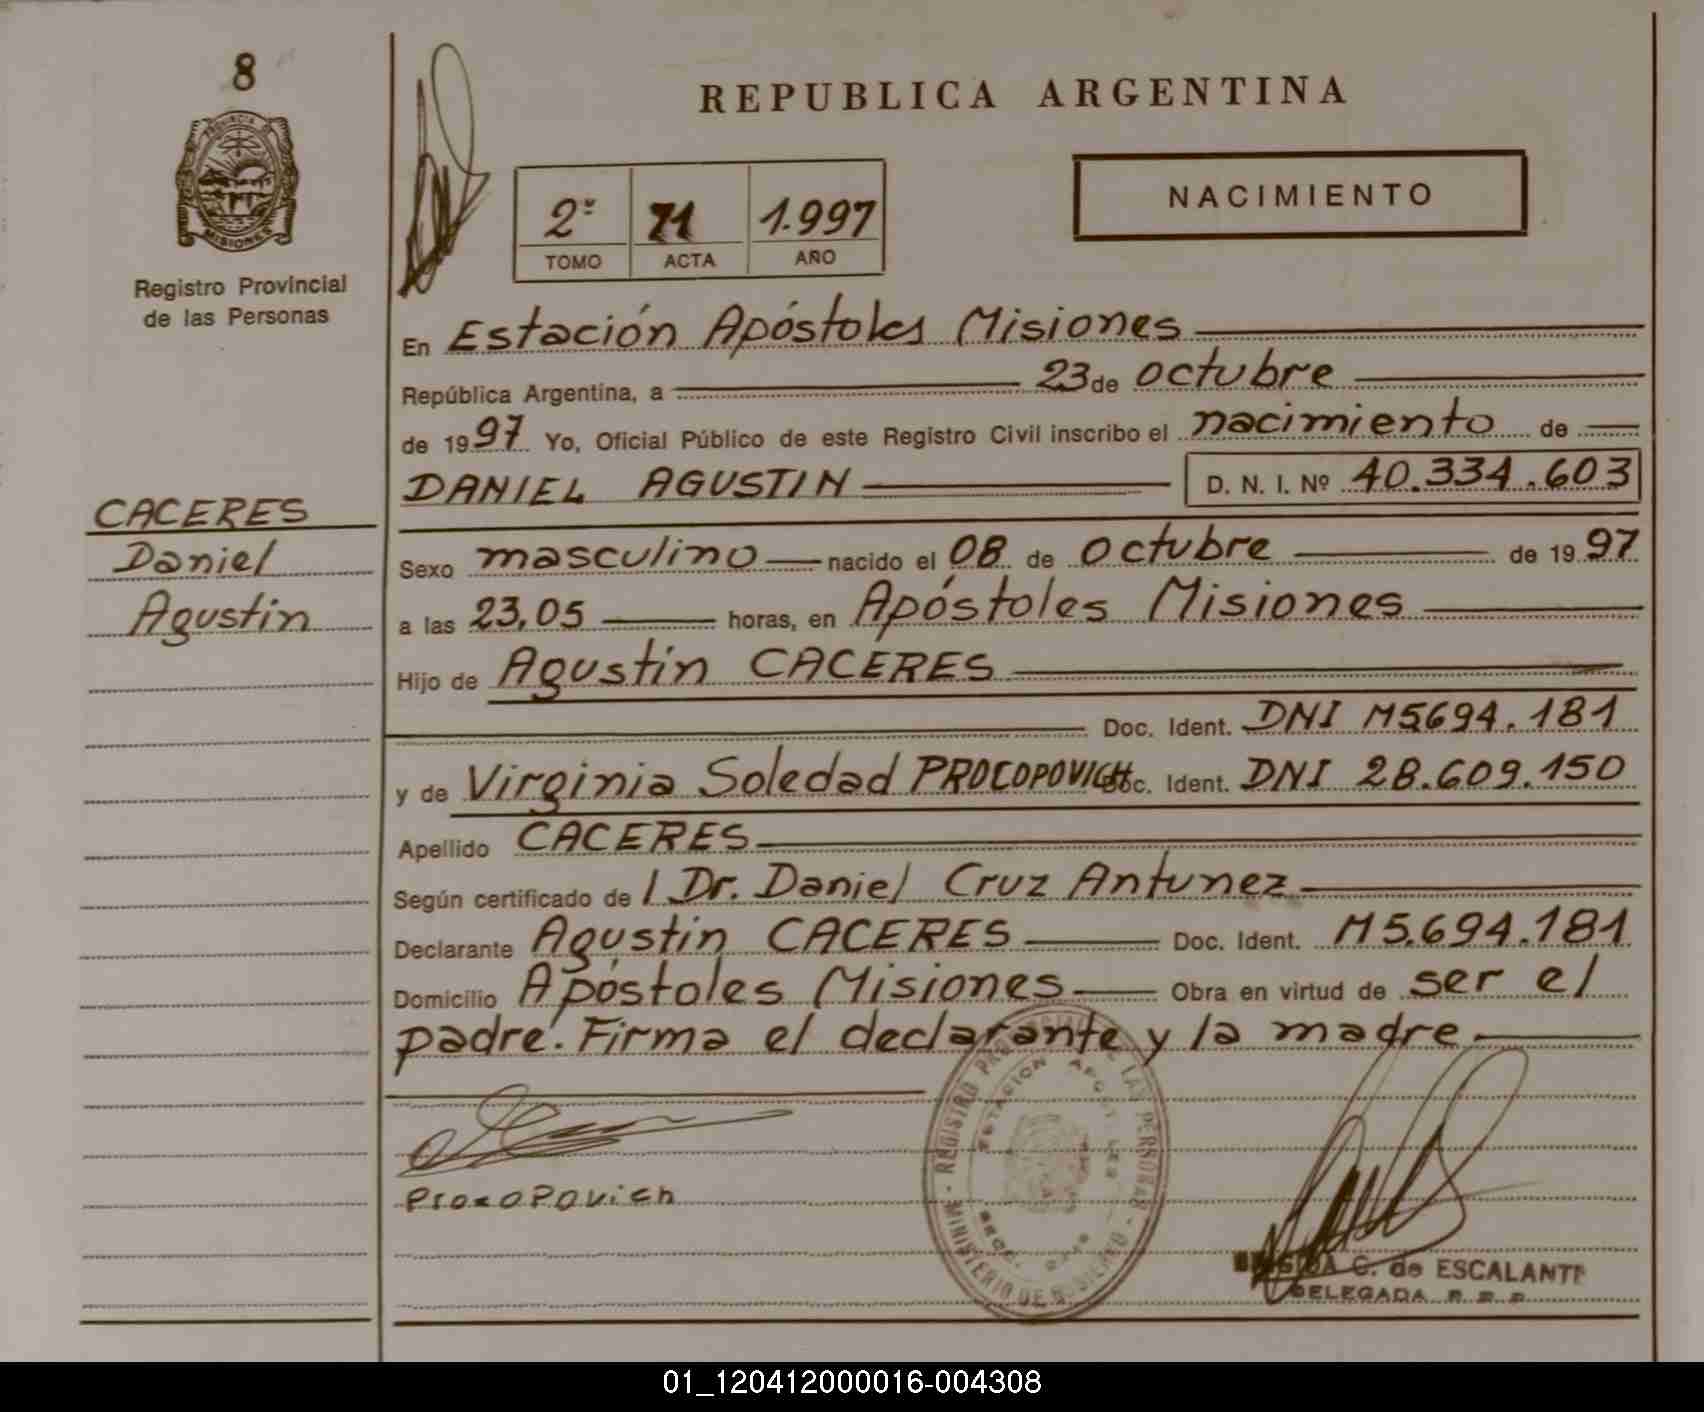 8
PROVINCIA DE
MISIONES
Registro Provincial
de las Personas
CACERES
Daniel
Agustin
REPUBLICA ARGENTINA
NACIMIENTO
2º 71 1.997
TOMO ACTA AÑO
En Estación Apóstoles Misiones
República Argentina, a 23 de octubre
de 1997 Yo, Oficial Público de este Registro Civil inscribo el nacimiento de
DANIEL AGUSTIN D. N. I. Nº 40.334.603
Sexo masculino nacido el 08 de octubre de 1997
a las 23,05 horas, en Apóstoles Misiones
Hijo de Agustin CACERES
Doc. Ident. DNI M5.694.181
y de Virginia Soledad PROCOPOVICH Doc. Ident. DNI 28.609.150
Apellido CACERES
Según certificado de l Dr. Daniel Cruz Antunez
Declarante Agustin CACERES Doc. Ident. M5.694.181
Domicilio Apóstoles Misiones Obra en virtud de ser el
padre. Firma el declarante y la madre
Procopovich
MINISTERIO DE GOBIERNO - REGISTRO PROVINCIAL DE LAS PERSONAS -
ESTACION APOSTOLES
C. de ESCALANTE
DELEGADA R. P. P.
01_120412000016-004308